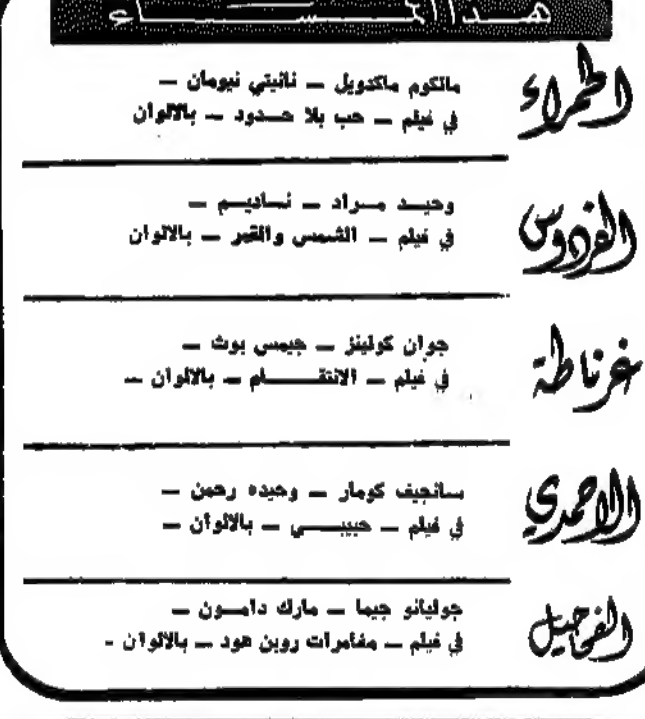 هذا المساء
الحمراء
مالكوم ماكدويل — نانيتي نيومان —
في فيلم — حب بلا حدود — بالالوان
الفردوس
وحيد مراد — نساديم —
في فيلم — الشمس والقمر — بالالوان
غرناطة
جوان كولينز — جيمس بوث —
في فيلم — الانتقام — بالالوان —
الاحمدي
سانجيف كومار — وحيده رحمن —
في فيلم — حبيبي — بالالوان —
الفحيحيل
جوليانو جيما — مارك دامون —
في فيلم — مغامرات روبن هود — بالالوان -